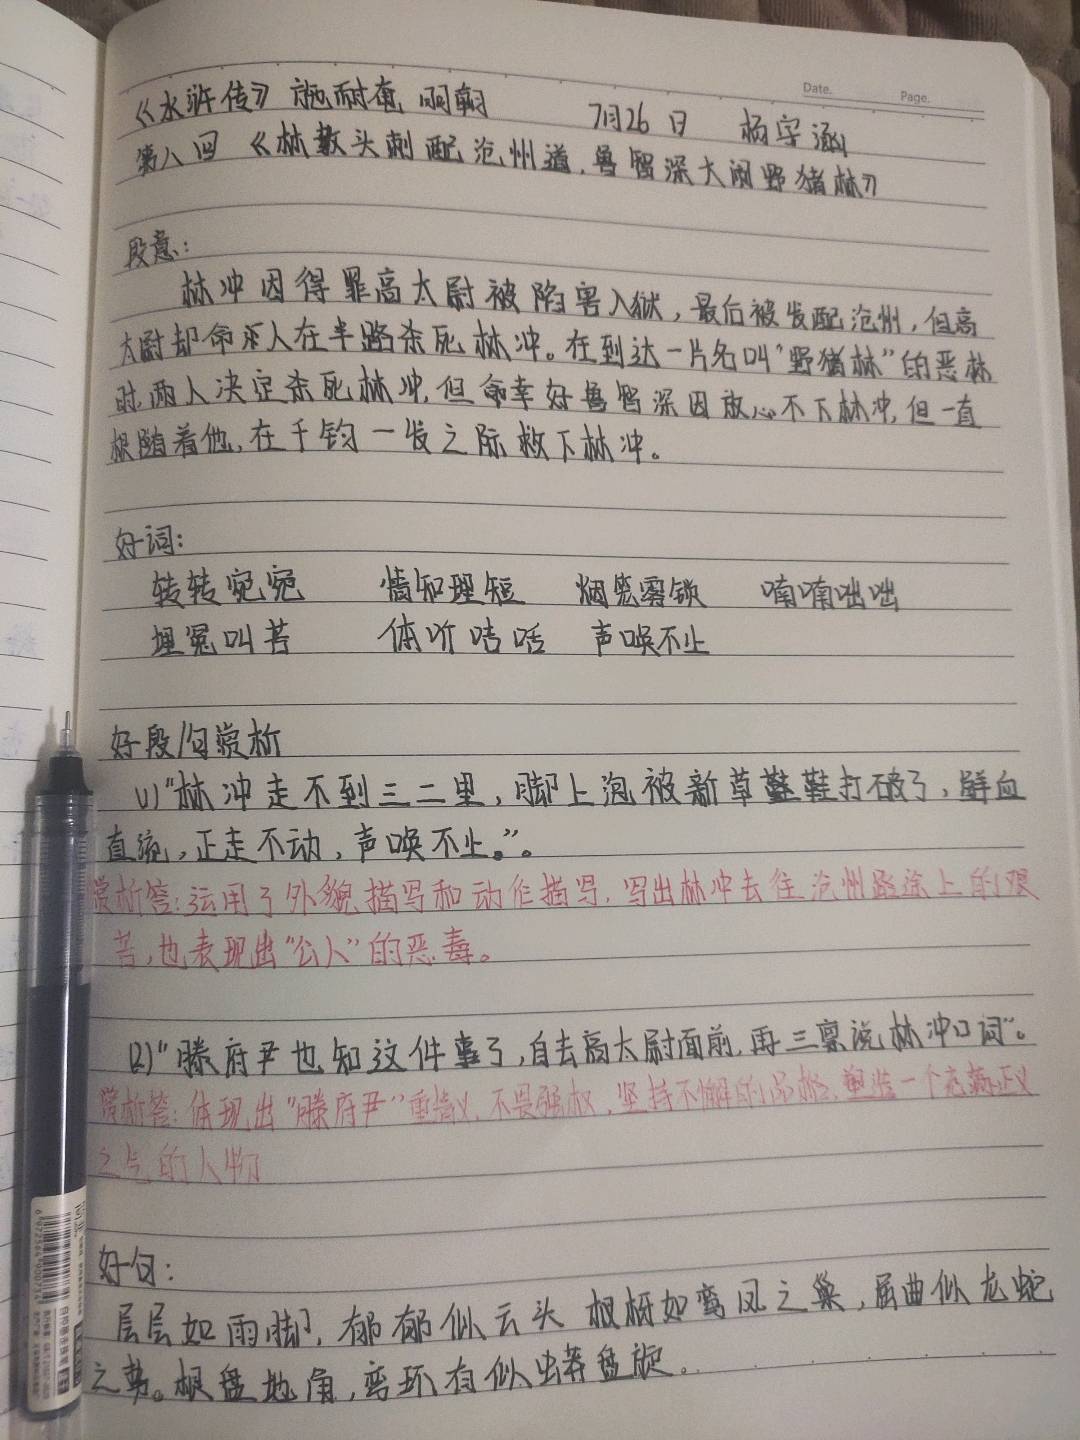 Date.    Page.
《水浒传》 施耐庵 明朝 7月26日 杨宇涵
第八回 《林教头刺配沧州道，鲁智深大闹野猪林》
段意：
林冲因得罪高太尉被陷害入狱，最后被发配沧州，但高
太尉却命余人在半路杀死林冲。在到达一片名叫"野猪林"的恶林
时，两人决定杀死林冲，但命幸好鲁智深因放心不下林冲，但一直
根随着他，在千钧一发之际救下林冲。
好词：
转转宛宛 情知理短 烟笼雾锁 喃喃咄咄
埋冤叫苦 体听咭咶 声唤不止
好段/句赏析
(1)"林冲走不到三二里，脚上泡被新草鞋鞋打破了，鲜血
直流，正走不动，声唤不止。"。
赏析答：运用了外貌描写和动作描写，写出林冲去往沧州路途上的艰
苦，也表现出"公人"的恶毒。
(2)"滕府尹也知这件事了，自去高太尉面前，再三禀说林冲口词"。
赏析答：体现出"滕府尹"重情义，不畏强权，坚持不懈的品格，塑造一个充满正义
之气的人物
好句：
层层如雨脚，郁郁似云头 根枒如鸾凤之巢，屈曲似龙蛇
之势。根盘地角，弯环有似蟒盘旋。